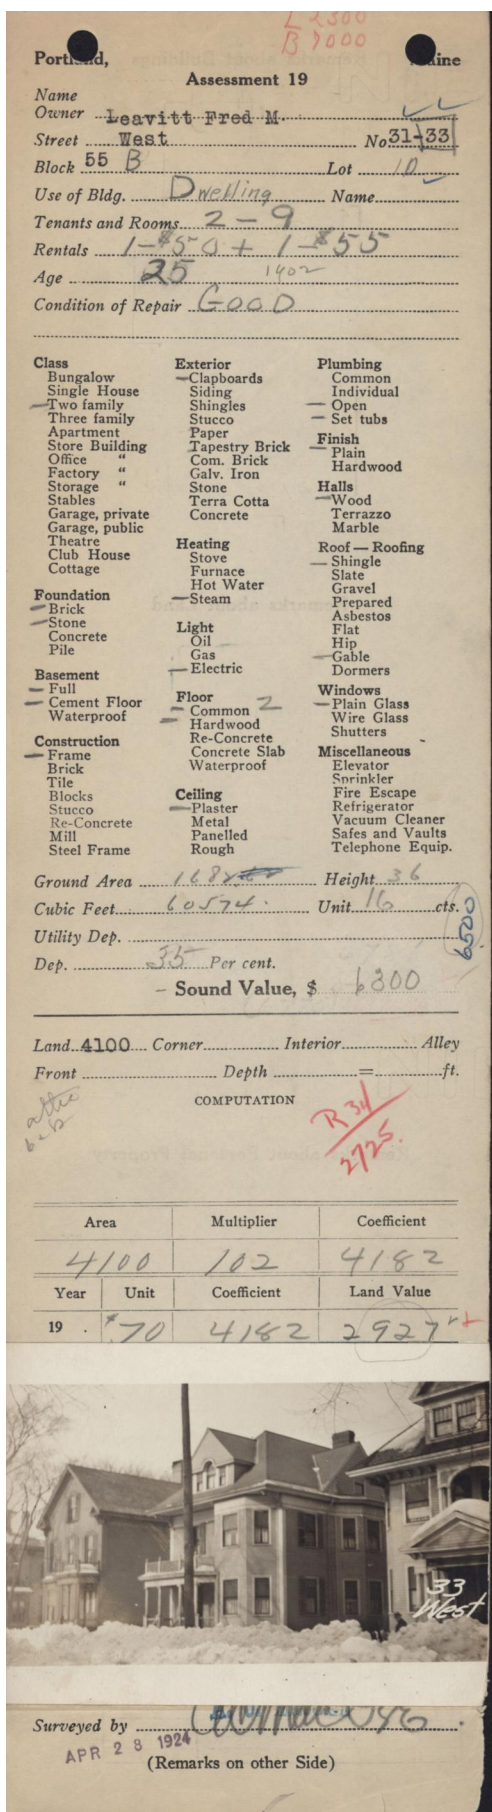 L 2300
B 7000
Portland, Maine
Assessment 19
Name
Owner Leavitt Fred M.
Street West No 31-33
Block 55 B Lot 10
Use of Bldg. Dwelling Name
Tenants and Rooms 2-9
Rentals 1-$50 + 1-$55
Age 25 1902
Condition of Repair GOOD
Class
Bungalow
Single House
Two family
Three family
Apartment
Store Building
Office "
Factory "
Storage "
Stables
Garage, private
Garage, public
Theatre
Club House
Cottage
Foundation
Brick
Stone
Concrete
Pile
Basement
Full
Cement Floor
Waterproof
Construction
Frame
Brick
Tile
Blocks
Stucco
Re-Concrete
Mill
Steel Frame
Exterior
Clapboards
Siding
Shingles
Stucco
Paper
Tapestry Brick
Com. Brick
Galv. Iron
Stone
Terra Cotta
Concrete
Heating
Stove
Furnace
Hot Water
Steam
Light
Oil
Gas
Electric
Floor
Common 2
Hardwood
Re-Concrete
Concrete Slab
Waterproof
Ceiling
Plaster
Metal
Panelled
Rough
Plumbing
Common
Individual
Open
Set tubs
Finish
Plain
Hardwood
Halls
Wood
Terrazzo
Marble
Roof — Roofing
Shingle
Slate
Gravel
Prepared
Asbestos
Flat
Hip
Gable
Dormers
Windows
Plain Glass
Wire Glass
Shutters
Miscellaneous
Elevator
Sprinkler
Fire Escape
Refrigerator
Vacuum Cleaner
Safes and Vaults
Telephone Equip.
Ground Area Height 36
Cubic Feet 60574. Unit 16 cts.
6500
Utility Dep.
Dep. 35 Per cent.
Sound Value, $ 6300
Land 4100 Corner Interior Alley
Front Depth = ft.
COMPUTATION
attic
R 34
2725.
Area Multiplier Coefficient
4100 102 4182
Year Unit Coefficient Land Value
19 . $70 4182 2927
33
West
Surveyed by
APR 28 1924
(Remarks on other Side)